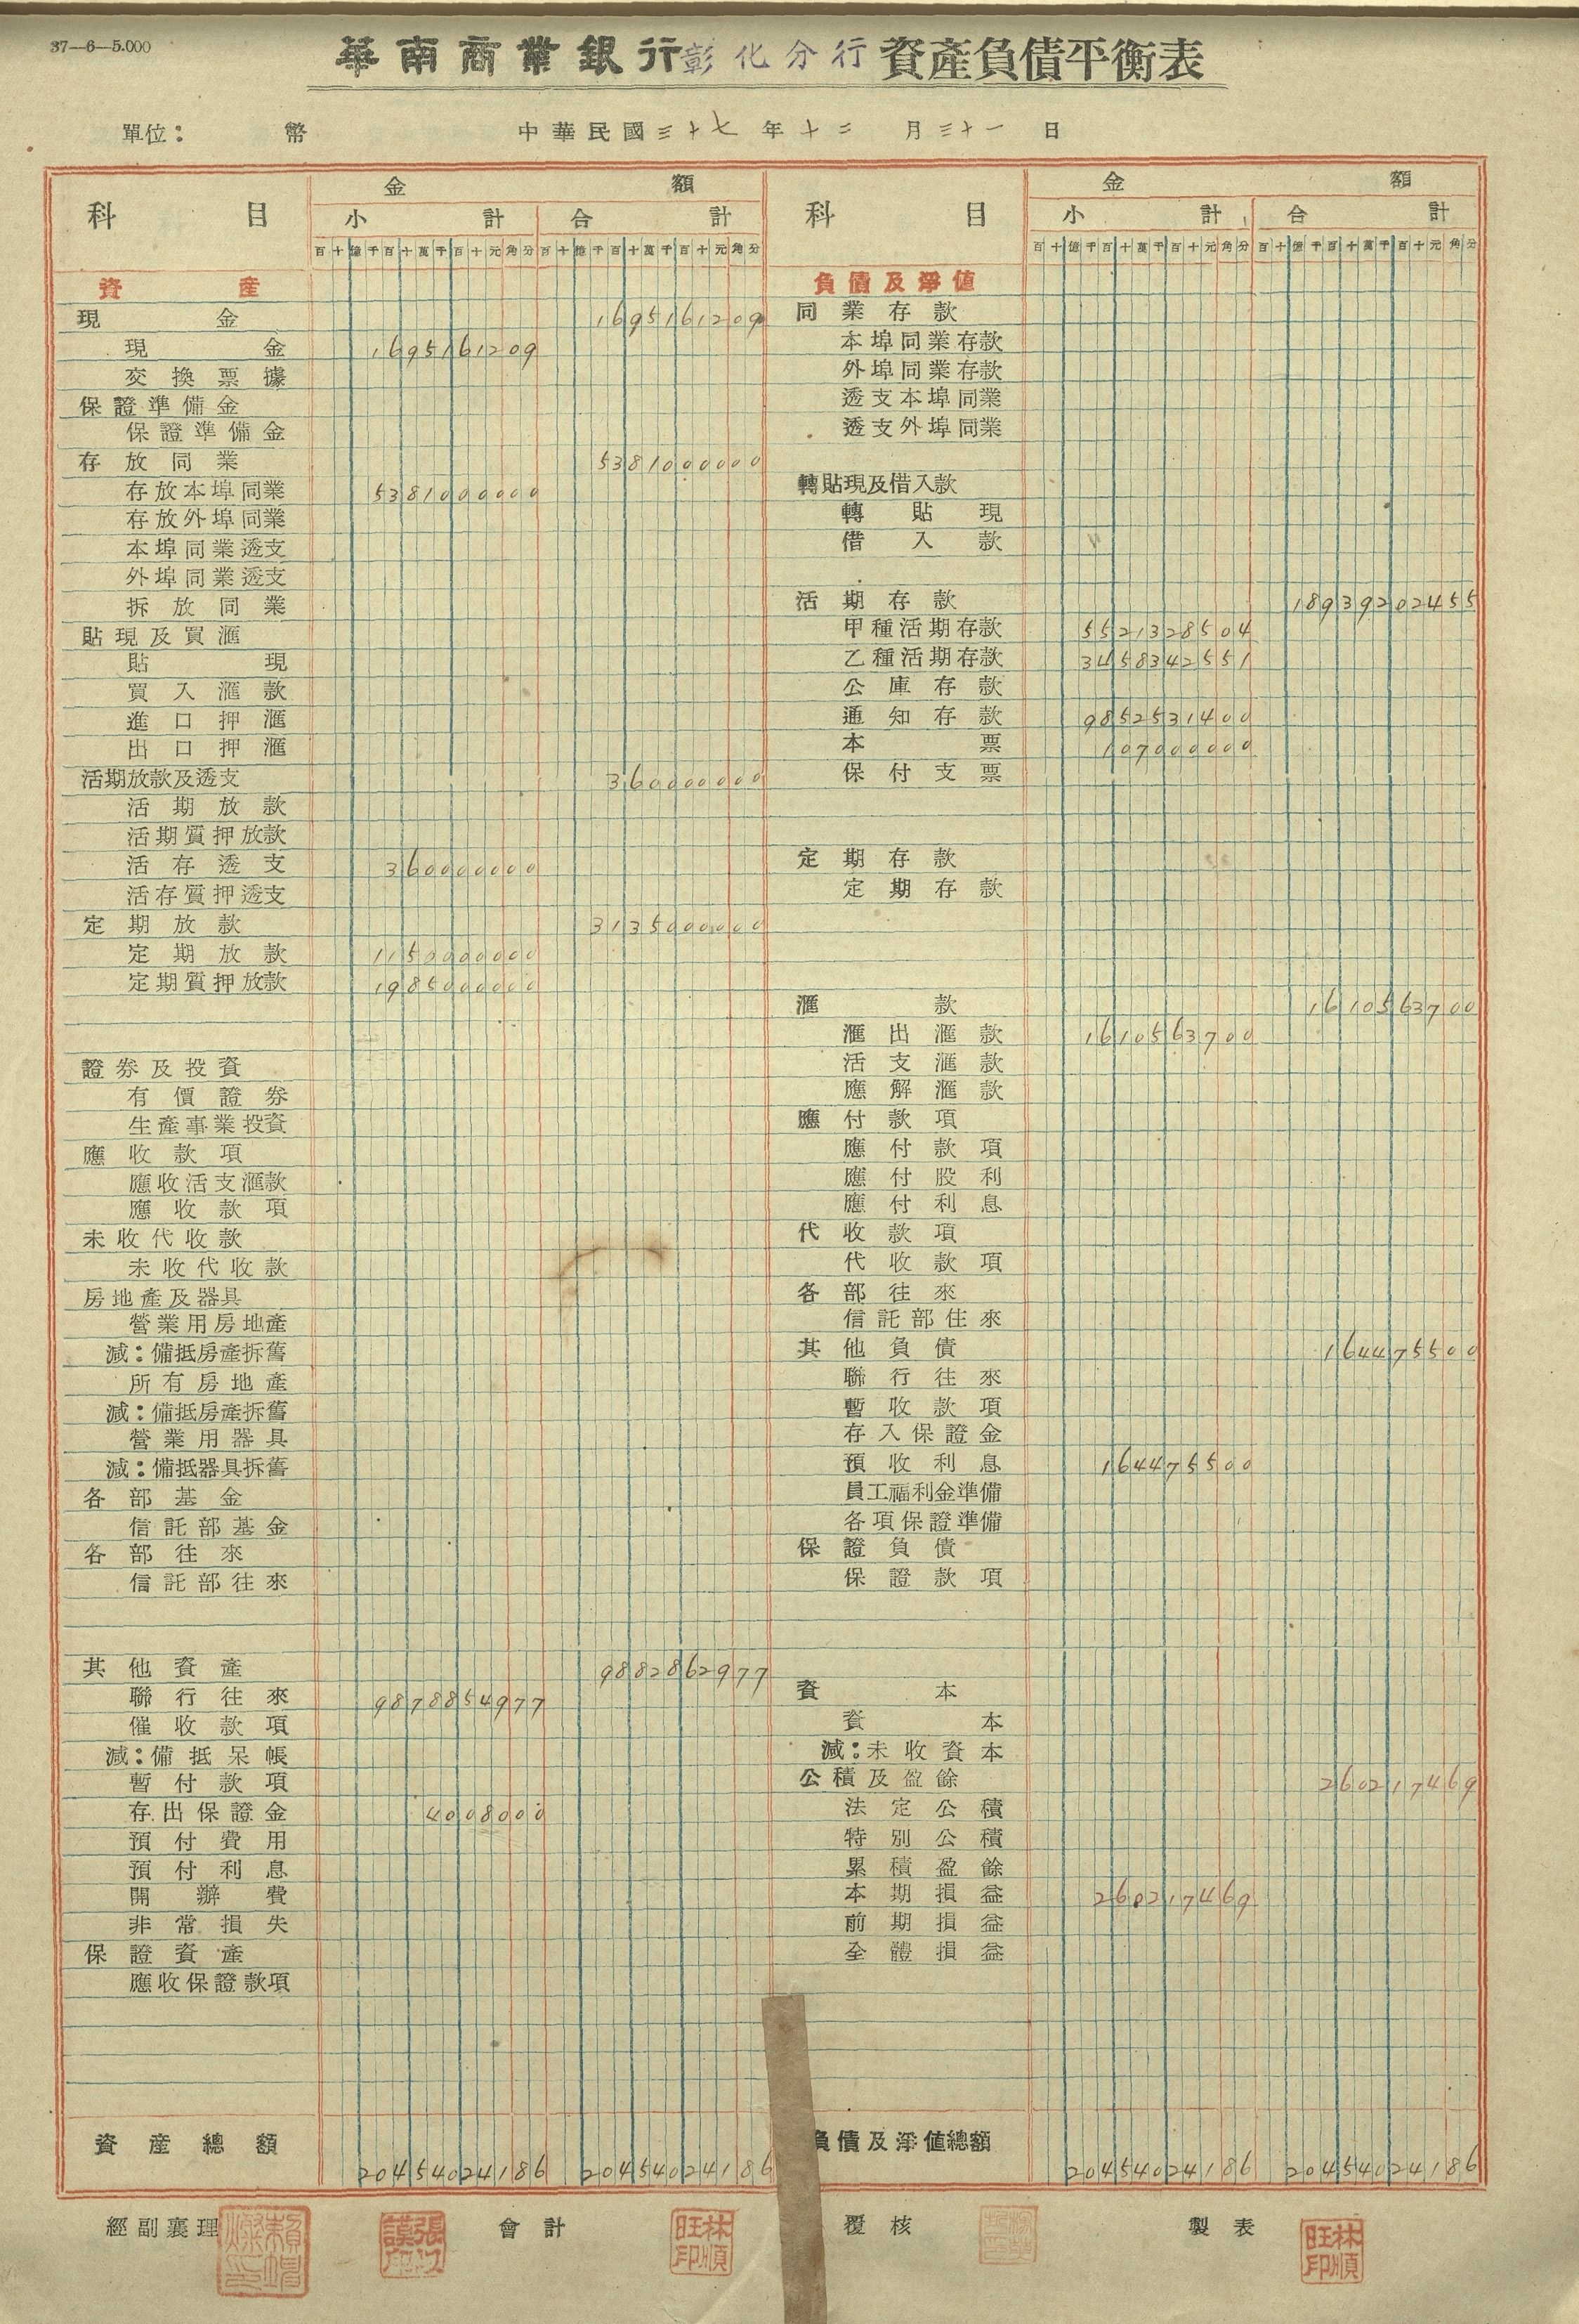 37—6—5.000
華南商業銀行彰化分行資產負債平衡表
單位： 幣 中華民國三十七年十二月三十一日
科目 金額
小計 合計
百十億千百十萬千百十元角分 百十億千百十萬千百十元角分
資產
現金 1695161209
現金 1695161209
交換票據
保證準備金
保證準備金
存放同業 5381000000
存放本埠同業 5381000000
存放外埠同業
本埠同業透支
外埠同業透支
拆放同業
貼現及買滙
貼現
買入滙款
進口押滙
出口押滙
活期放款及透支 360000000
活期放款
活期質押放款
活存透支 360000000
活存質押透支
定期放款 3135000000
定期放款 1150000000
定期質押放款 1985000000
證券及投資
有價證券
生產事業投資
應收款項
應收活支滙款
應收款項
未收代收款
未收代收款
房地產及器具
營業用房地產
減：備抵房產拆舊
所有房地產
減：備抵房產拆舊
營業用器具
減：備抵器具拆舊
各部基金
信託部基金
各部往來
信託部往來
其他資產 9882862977
聯行往來 9878854977
催收款項
減：備抵呆帳
暫付款項
存出保證金 4008000
預付費用
預付利息
開辦費
非常損失
保證資產
應收保證款項
資產總額 20454024186 20454024186
科目 金額
小計 合計
百十億千百十萬千百十元角分 百十億千百十萬千百十元角分
負債及淨値
同業存款
本埠同業存款
外埠同業存款
透支本埠同業
透支外埠同業
轉貼現及借入款
轉貼現
借入款
活期存款 18939202455
甲種活期存款 5521328504
乙種活期存款 3458342551
公庫存款
通知存款 9852531400
本票 107000000
保付支票
定期存款
定期存款
滙款 1610563700
滙出滙款 1610563700
活支滙款
應解滙款
應付款項
應付款項
應付股利
應付利息
代收款項
代收款項
各部往來
信託部往來
其他負債 164475500
聯行往來
暫收款項
存入保證金
預收利息 164475500
員工福利金準備
各項保證準備
保證負債
保證款項
資本
資本
減：未收資本
公積及盈餘 260217469
法定公積
特別公積
累積盈餘
本期損益 260217469
前期損益
全體損益
負債及淨値總額 20454024186 20454024186
經副襄理 會計 林順旺印 覆核 製表 林順旺印